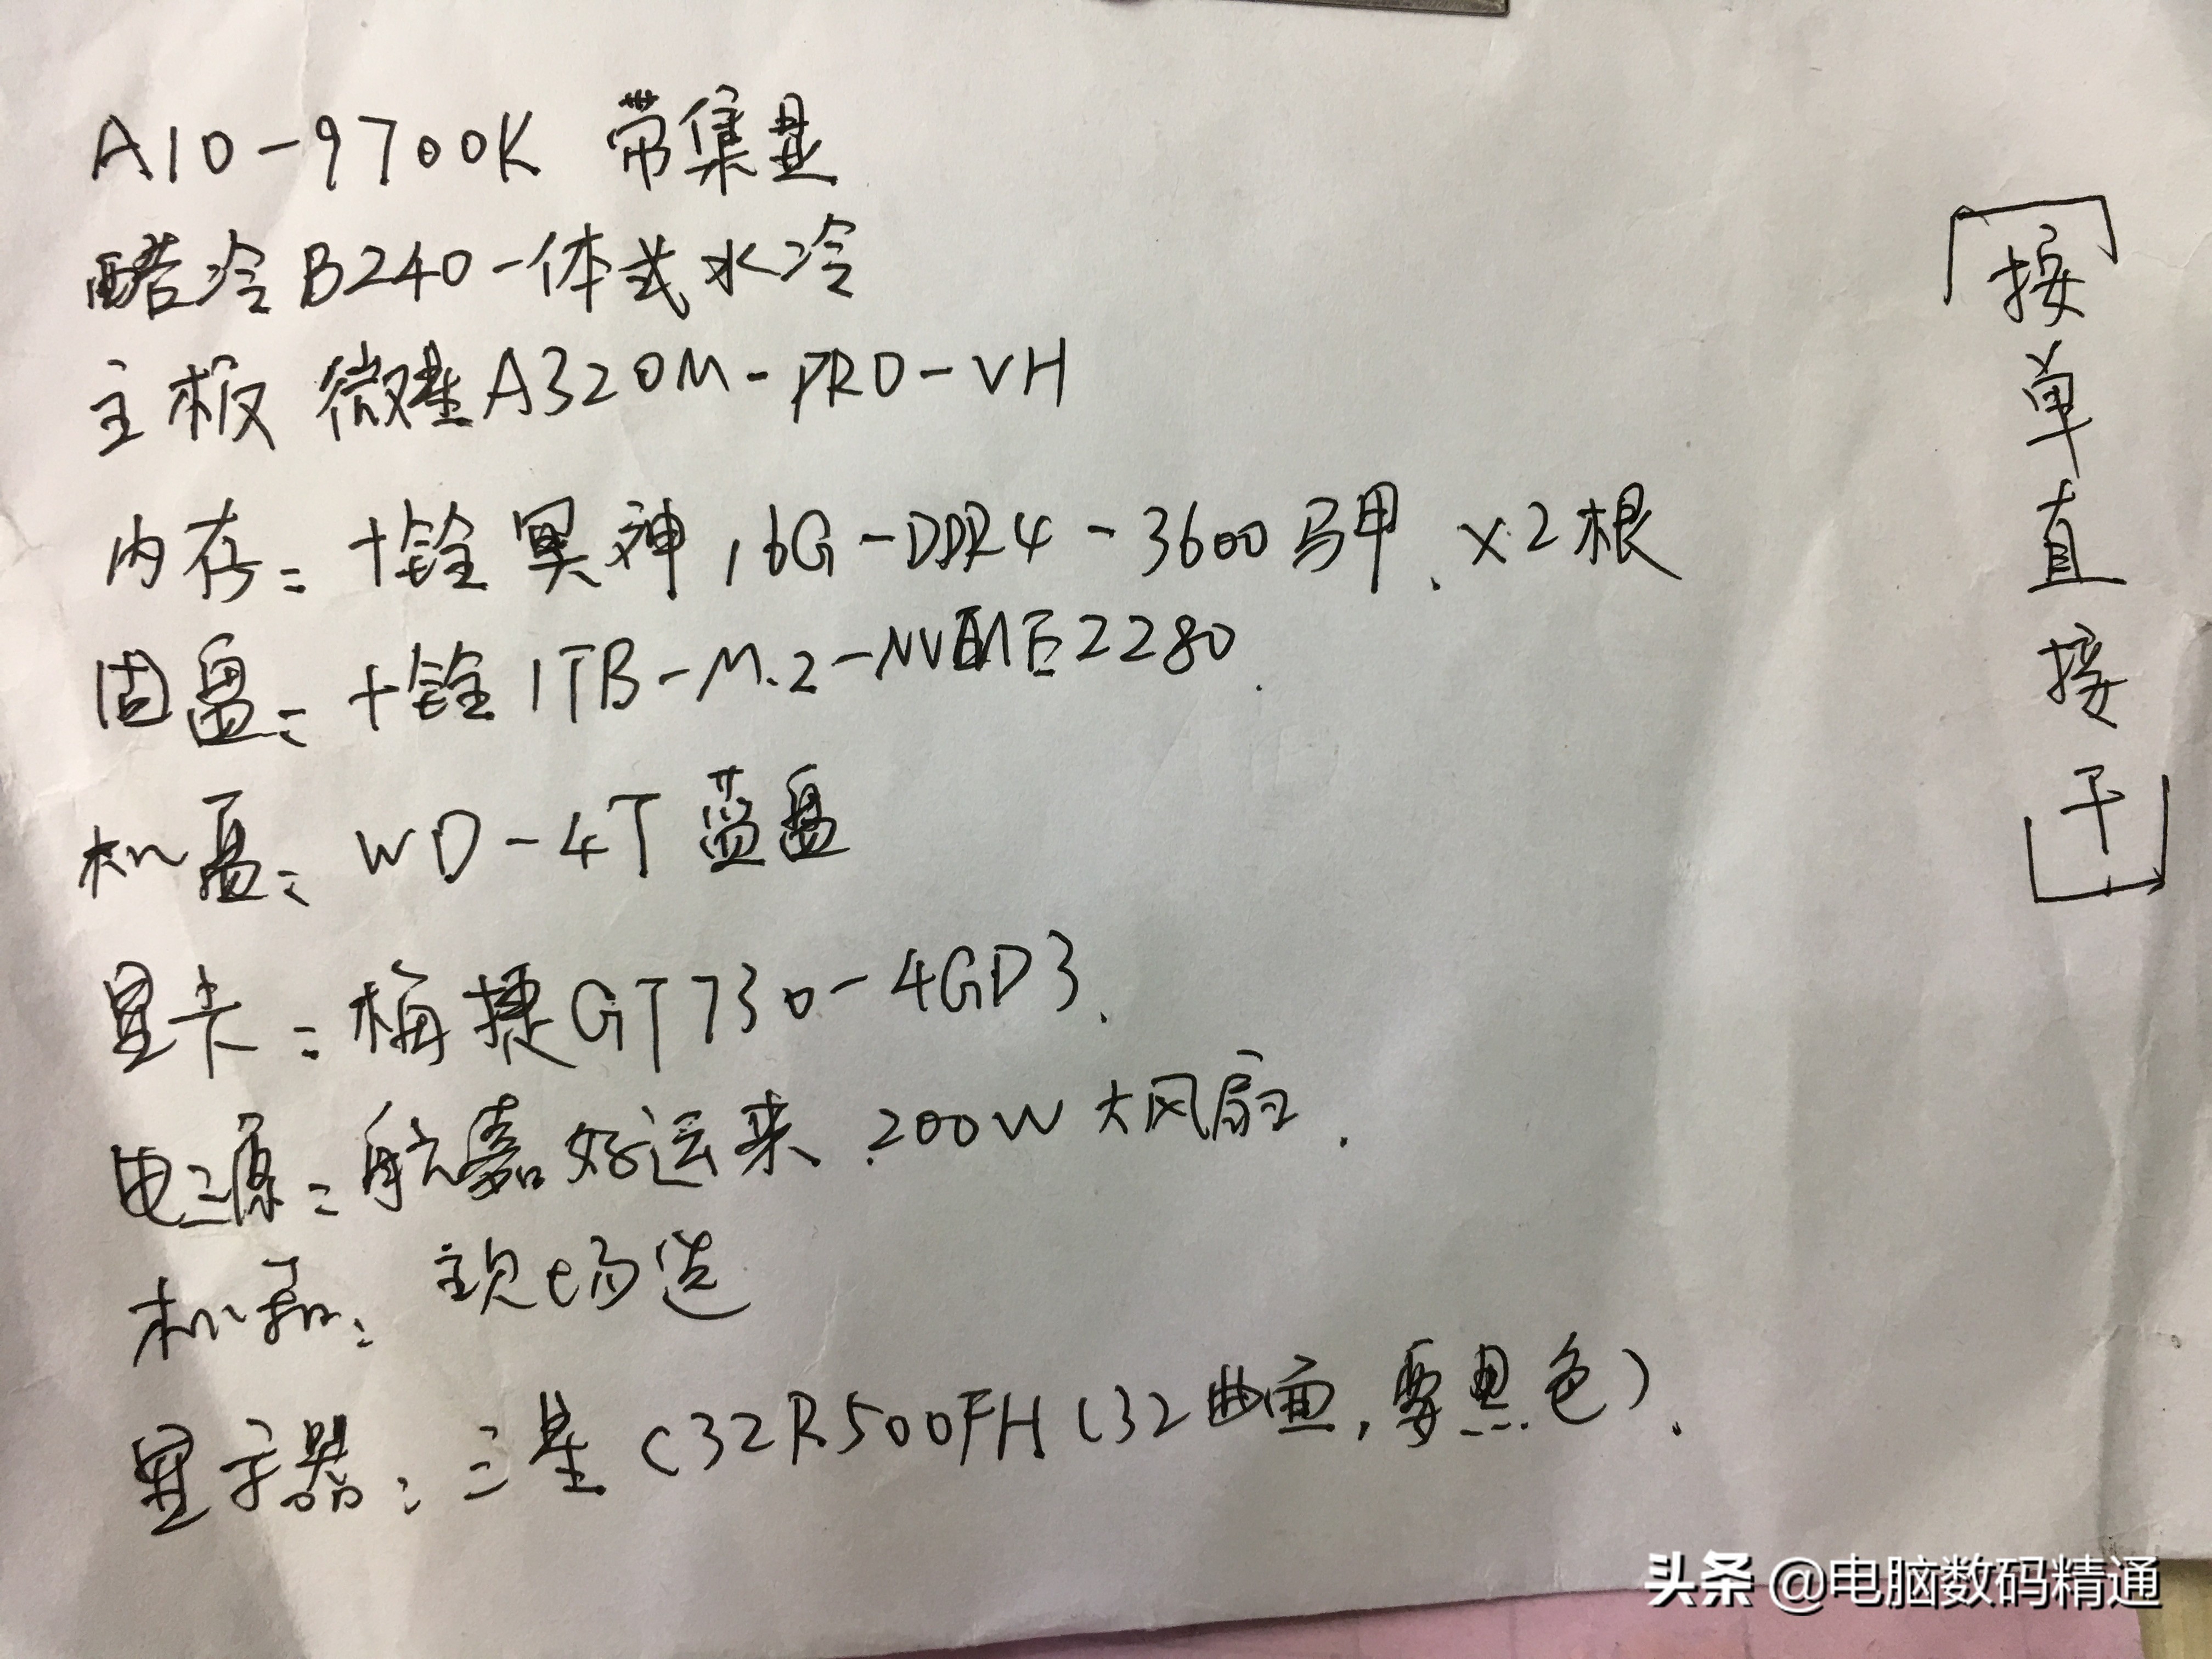 A10-9700K 带集显
酷冷B240一体式水冷
主板 微星A320M-PRO-VH
内存：十铨冥神16G-DDR4-3600马甲、×2根
固盘：十铨1TB-M.2-NVME2280.
机械：WD-4T蓝盘
显卡：梅捷GT730-4GD3.
电源：航嘉好运来.200W大风扇.
机箱：现场选
显示器：三星C32R500FH(32曲面,要黑色).
接单直接干
头条 @电脑数码精通